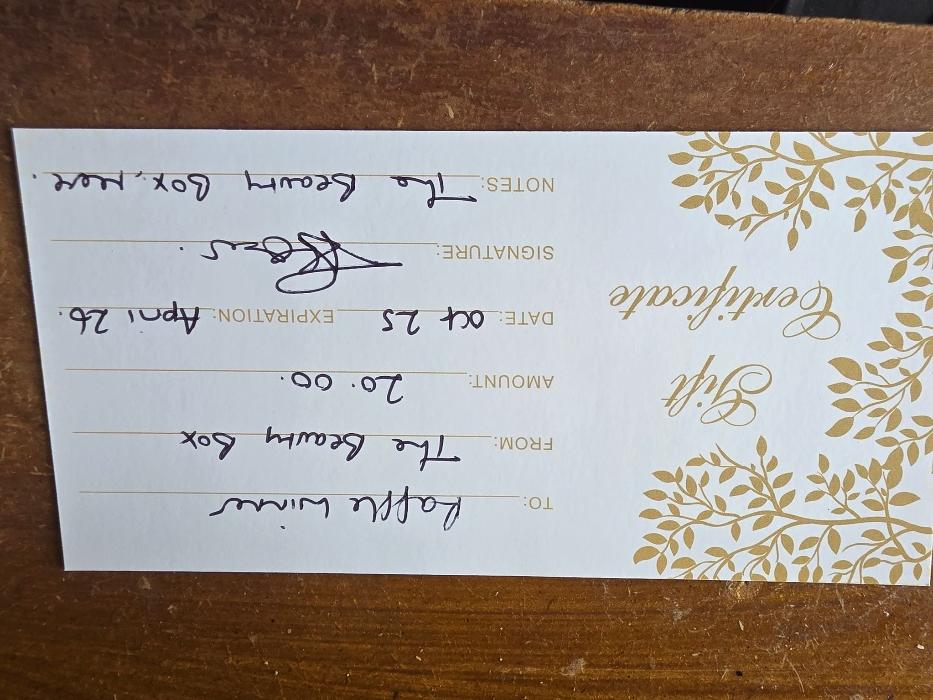 Gift
Certificate
TO: Raffle Winner
FROM: The Beauty Box
AMOUNT: 20.00.
DATE: Oct 25 EXPIRATION: April 26.
SIGNATURE:
NOTES: The Beauty Box,